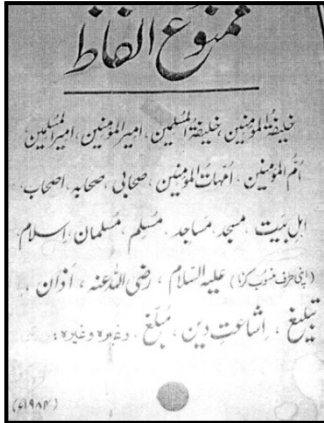 ممنوع الفاظ
خلیفۃ المؤمنین، خلیفۃ المسلمین، امیر المؤمنین، امیر المسلمین،
ام المؤمنین، امہات المؤمنین، صحابی، صحابہ، اصحاب،
اہل بیت، مسجد، مساجد، مسلم، مسلمان، اسلام
(اپنی طرف منسوب کرنا) علیہ السلام، رضی اللہ عنہ، اذان،
تبلیغ، اشاعتِ دین، مبلغ، وغیرہ وغیرہ۔
(۱۹۸۴ء)